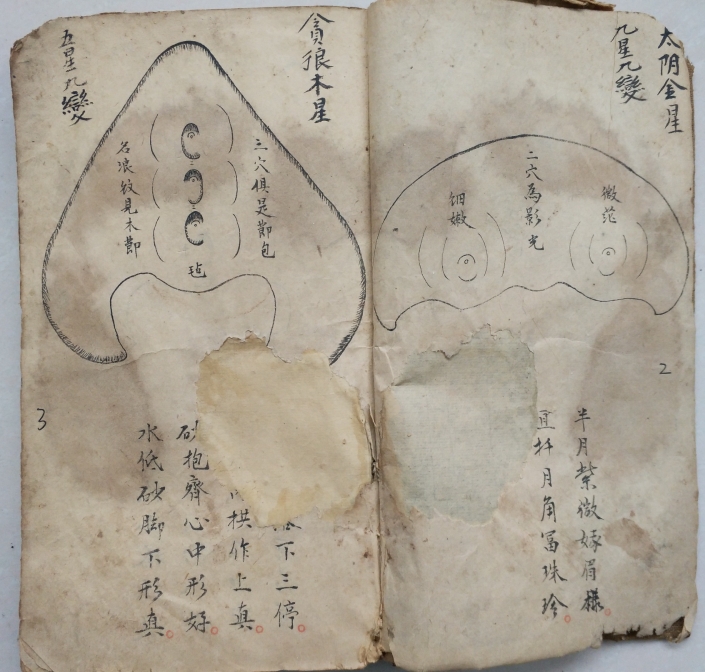 太阴金星
九星九變
二穴為影光
微茫
細嫩
2
半月紫微娥眉樣
扦月角冨珠
貪狼木星
三穴俱是節包
名浪紋見木節
毡
五星一九變
3
下三停
拱作上真
砂抱齊心中形好
水低砂脚下形真